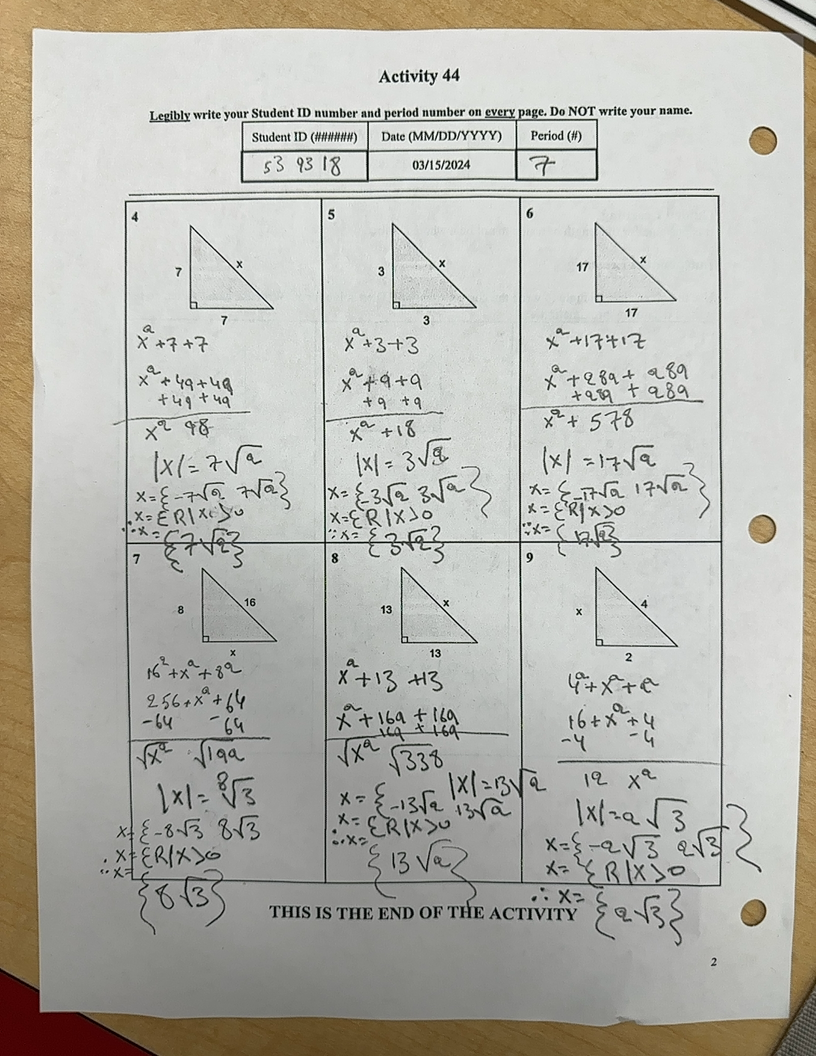 Activity 44
Legibly write your Student ID number and period number on every page. Do NOT write your name.
Student ID (######) Date (MM/DD/YYYY) Period (#)
53 93 18 03/15/2024 7
4
7
x
7
x² + 7 + 7
x² + 49 + 49
+ 49 + 49
x² 98
|x| = 7√2
x = {-7√2 7√2}
x = {R|x>0
∴x = {7√2}
5
3
x
3
x² + 3 + 3
x² + 9 + 9
+ 9 + 9
x² + 18
|x| = 3√2
x = {-3√2 3√2}
x = {R|x>0
∴x = {3√2}
6
17
x
17
x² + 17 + 17
x² + 289 + 289
+ 289 + 289
x² + 578
|x| = 17√2
x = {-17√2 17√2}
x = {R|x>0
∴x = {17√2}
7
8
16
x
16² + x² + 8²
256 + x² + 64
-64 -64
√x² √192
|x| = 8√3
x = {-8√3 8√3
x = {R|x>0
∴x = {8√3}
8
13
x
13
x² + 13 + 13
x² + 169 + 169
169 + 169
√x² √338
|x| = 13√2
x = {-13√2 13√2
x = {R|x>0
∴x = {13√2}
9
x
4
2
4² + x² + 2
16 + x² + 4
-4 -4
12 x²
|x| = 2√3
x = {-2√3 2√3}
x = {R|x>0
∴ x = {2√3}
THIS IS THE END OF THE ACTIVITY
2